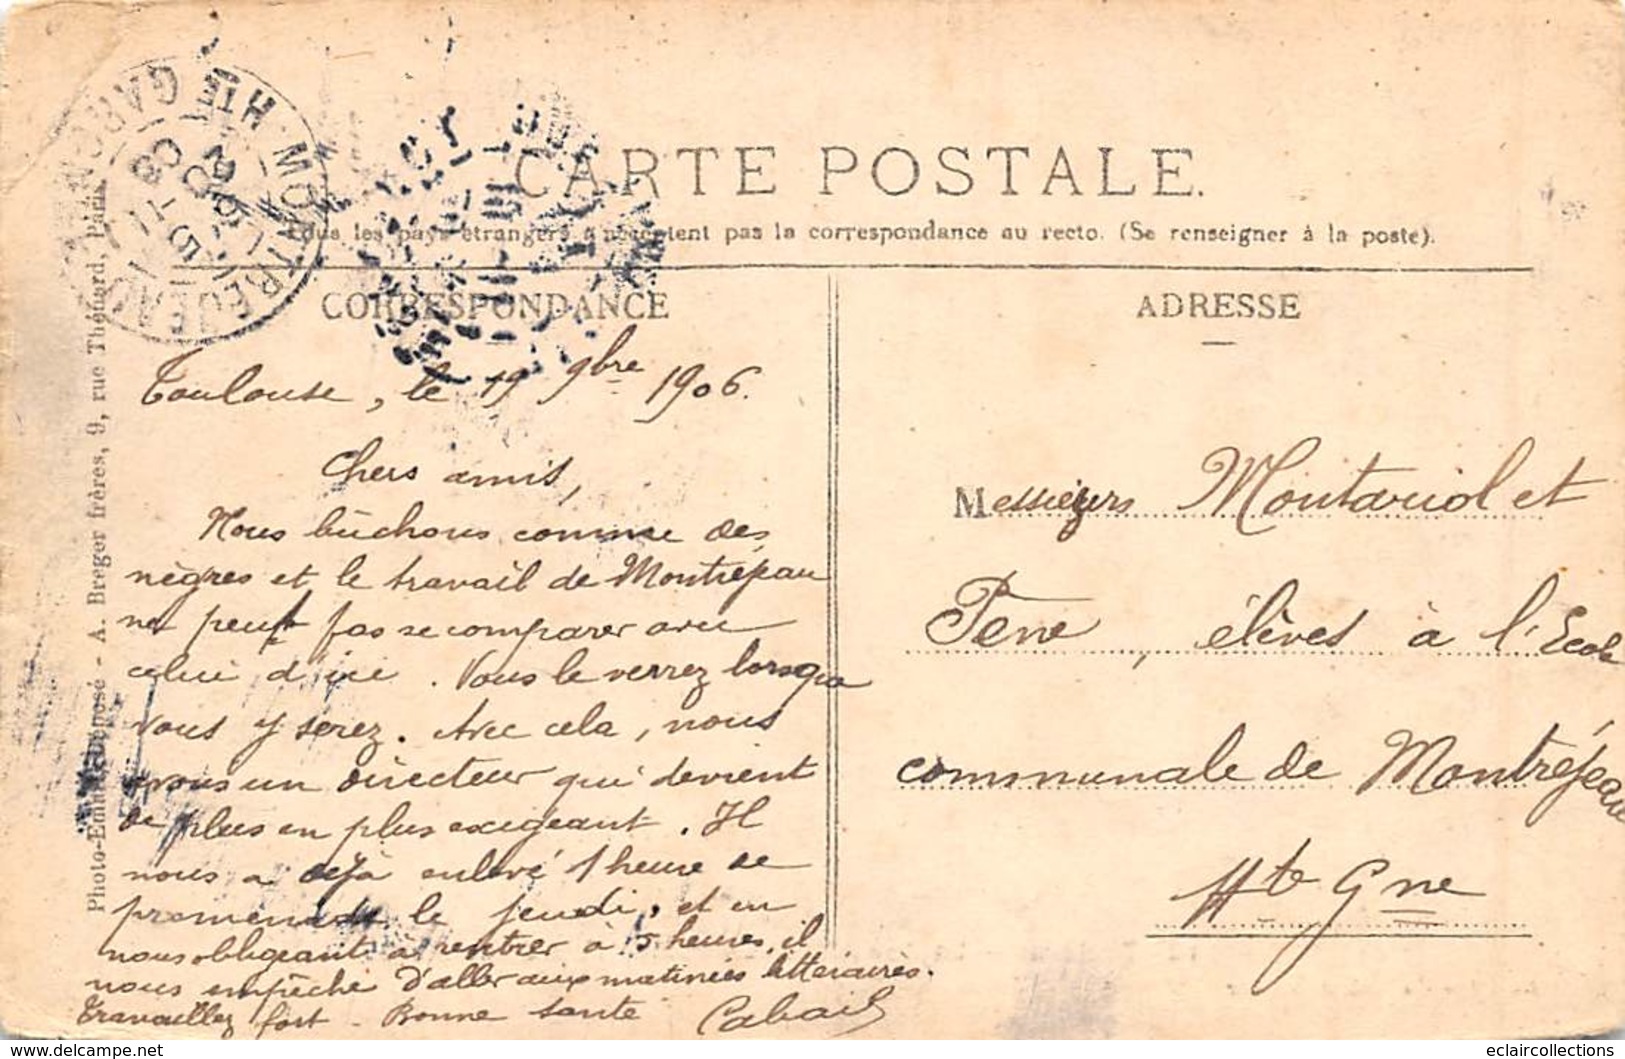 CARTE POSTALE.
Tous les pays étrangers n'acceptent pas la correspondance au recto. (Se renseigner à la poste).
CORRESPONDANCE
Toulouse, le 19 9bre 1906.
Chers amis,
Nous bûchons comme des
nègres et le travail de Montréjeau
ne peut pas se comparer avec
celui d'ici. Vous le verrez lorsque
vous y serez. Avec cela, nous
avons un directeur qui devient
de plus en plus exigeant. Il
nous a déjà enlevé 1 heure de
promenade le jeudi, et en
nous obligeant à rentrer à 5 heures, il
nous empêche d'aller aux matinées littéraires.
Travaillez fort - Bonne santé
ADRESSE
Messieurs Montariol et
Pene, élèves à l'Ecole
communale de Montréjeau
Hte Gne
MONTREJEAU HTE GARONNE
Photo-Email Déposé - A. Breger frères, 9, rue Thénard, Paris.
eclaircollections